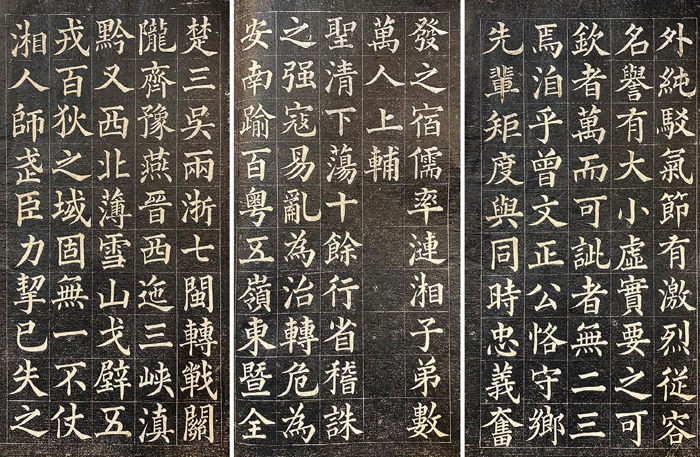 外純駁氣節有激烈従容
名譽有大小虛實要之可
欽者萬而可訿者無二三
焉洎乎曾文正公恪守鄉
先輩矩度與同時忠義奮
發之宿儒率漣湘子弟數
萬人上輔
聖清下蕩十餘行省稽誅
之强寇易亂為治轉危為
安南踰百粵五嶺東暨全
楚三吳兩浙七閩轉戰關
隴齊豫燕晉西迤三峽滇
黔又西北薄雪山戈壁五
戎百狄之域固無一不仗
湘人師武臣力挈已失之